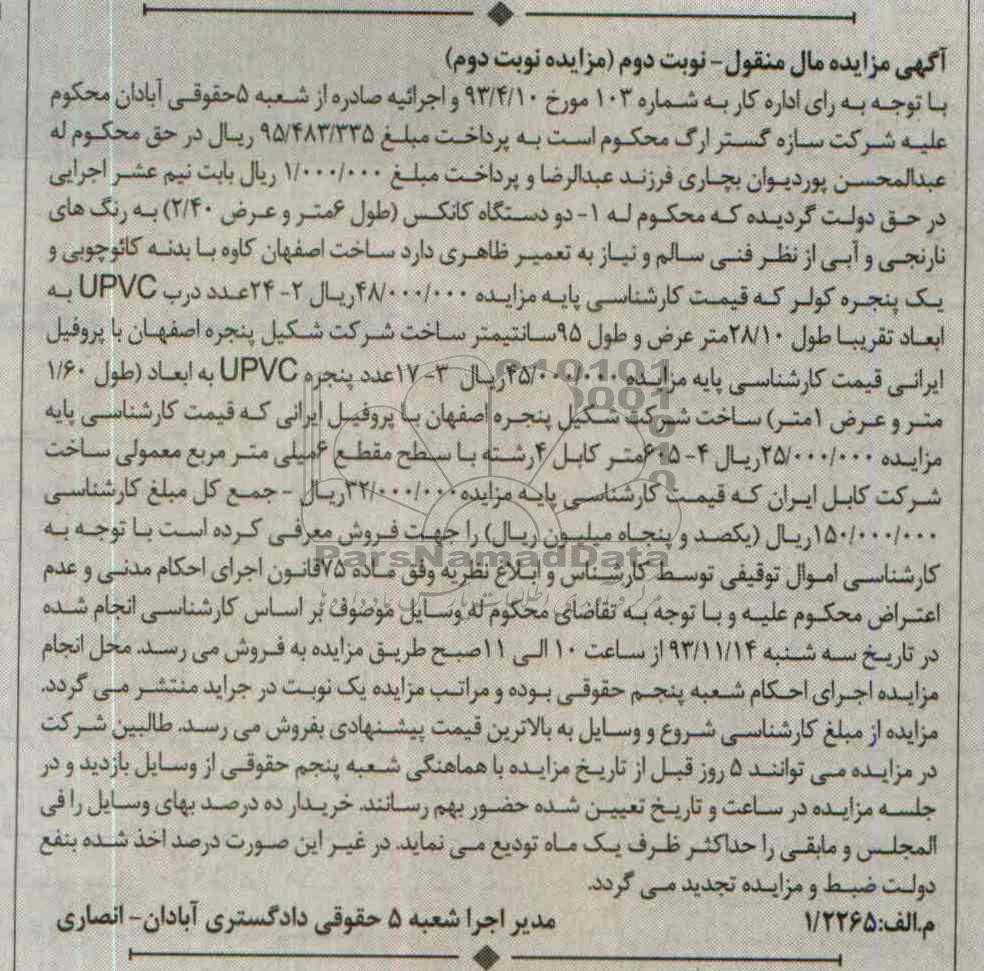 آگهی مزایده مال منقول- نوبت دوم (مزایده نوبت دوم)
با توجه به رای اداره کار به شماره ۱۰۳ مورخ ۹۳/۴/۱۰ و اجرائیه صادره از شعبه ۵حقوقی آبادان محکوم
علیه شرکت سازه گستر ارگ محکوم است به پرداخت مبلغ ۹۵/۴۸۳/۳۳۵ ریال در حق محکوم له
عبدالمحسن پوردیوان بچاری فرزند عبدالرضا و پرداخت مبلغ ۱/۰۰۰/۰۰۰ ریال بابت نیم عشر اجرایی
در حق دولت گردیده که محکوم له ۱- دو دستگاه کانکس (طول ۶متر و عرض ۲/۴۰) به رنگ های
نارنجی و آبی از نظر فنی سالم و نیاز به تعمیر ظاهری دارد ساخت اصفهان کاوه با بدنه کائوچویی و
یک پنجره کولر که قیمت کارشناسی پایه مزایده ۴۸/۰۰۰/۰۰۰ریال ۲- ۲۴عدد درب UPVC به
ابعاد تقریبا طول ۲۸/۱۰متر عرض و طول ۹۵سانتیمتر ساخت شرکت شکیل پنجره اصفهان با پروفیل
ایرانی قیمت کارشناسی پایه مزایده ۴۵/۰۰۰/۰۰۰ریال ۳- ۱۷عدد پنجره UPVC به ابعاد (طول ۱/۶۰
متر و عرض ۱متر) ساخت شرکت شکیل پنجره اصفهان با پروفیل ایرانی که قیمت کارشناسی پایه
مزایده ۲۵/۰۰۰/۰۰۰ریال ۴- ۶۰۵متر کابل ۴رشته با سطح مقطع ۶میلی متر مربع معمولی ساخت
شرکت کابل ایران که قیمت کارشناسی پایه مزایده۳۲/۰۰۰/۰۰۰ریال - جمع کل مبلغ کارشناسی
۱۵۰/۰۰۰/۰۰۰ریال (یکصد و پنجاه میلیون ریال) را جهت فروش معرفی کرده است با توجه به
ParsNamadData
کارشناسی اموال توقیفی توسط کارشناس و ابلاغ نظریه وفق ماده ۷۵قانون اجرای احکام مدنی و عدم
اعتراض محکوم علیه و با توجه به تقاضای محکوم له وسایل موصوف بر اساس کارشناسی انجام شده
در تاریخ سه شنبه ۹۳/۱۱/۱۴ از ساعت ۱۰ الی ۱۱صبح طریق مزایده به فروش می رسد. محل انجام
مزایده اجرای احکام شعبه پنجم حقوقی بوده و مراتب مزایده یک نوبت در جراید منتشر می گردد.
مزایده از مبلغ کارشناسی شروع و وسایل به بالاترین قیمت پیشنهادی بفروش می رسد. طالبین شرکت
در مزایده می توانند ۵ روز قبل از تاریخ مزایده با هماهنگی شعبه پنجم حقوقی از وسایل بازدید و در
جلسه مزایده در ساعت و تاریخ تعیین شده حضور بهم رسانند. خریدار ده درصد بهای وسایل را فی
المجلس و مابقی را حداکثر ظرف یک ماه تودیع می نماید. در غیر این صورت درصد اخذ شده بنفع
دولت ضبط و مزایده تجدید می گردد.
م.الف:۱/۲۲۶۵ مدیر اجرا شعبه ۵ حقوقی دادگستری آبادان- انصاری